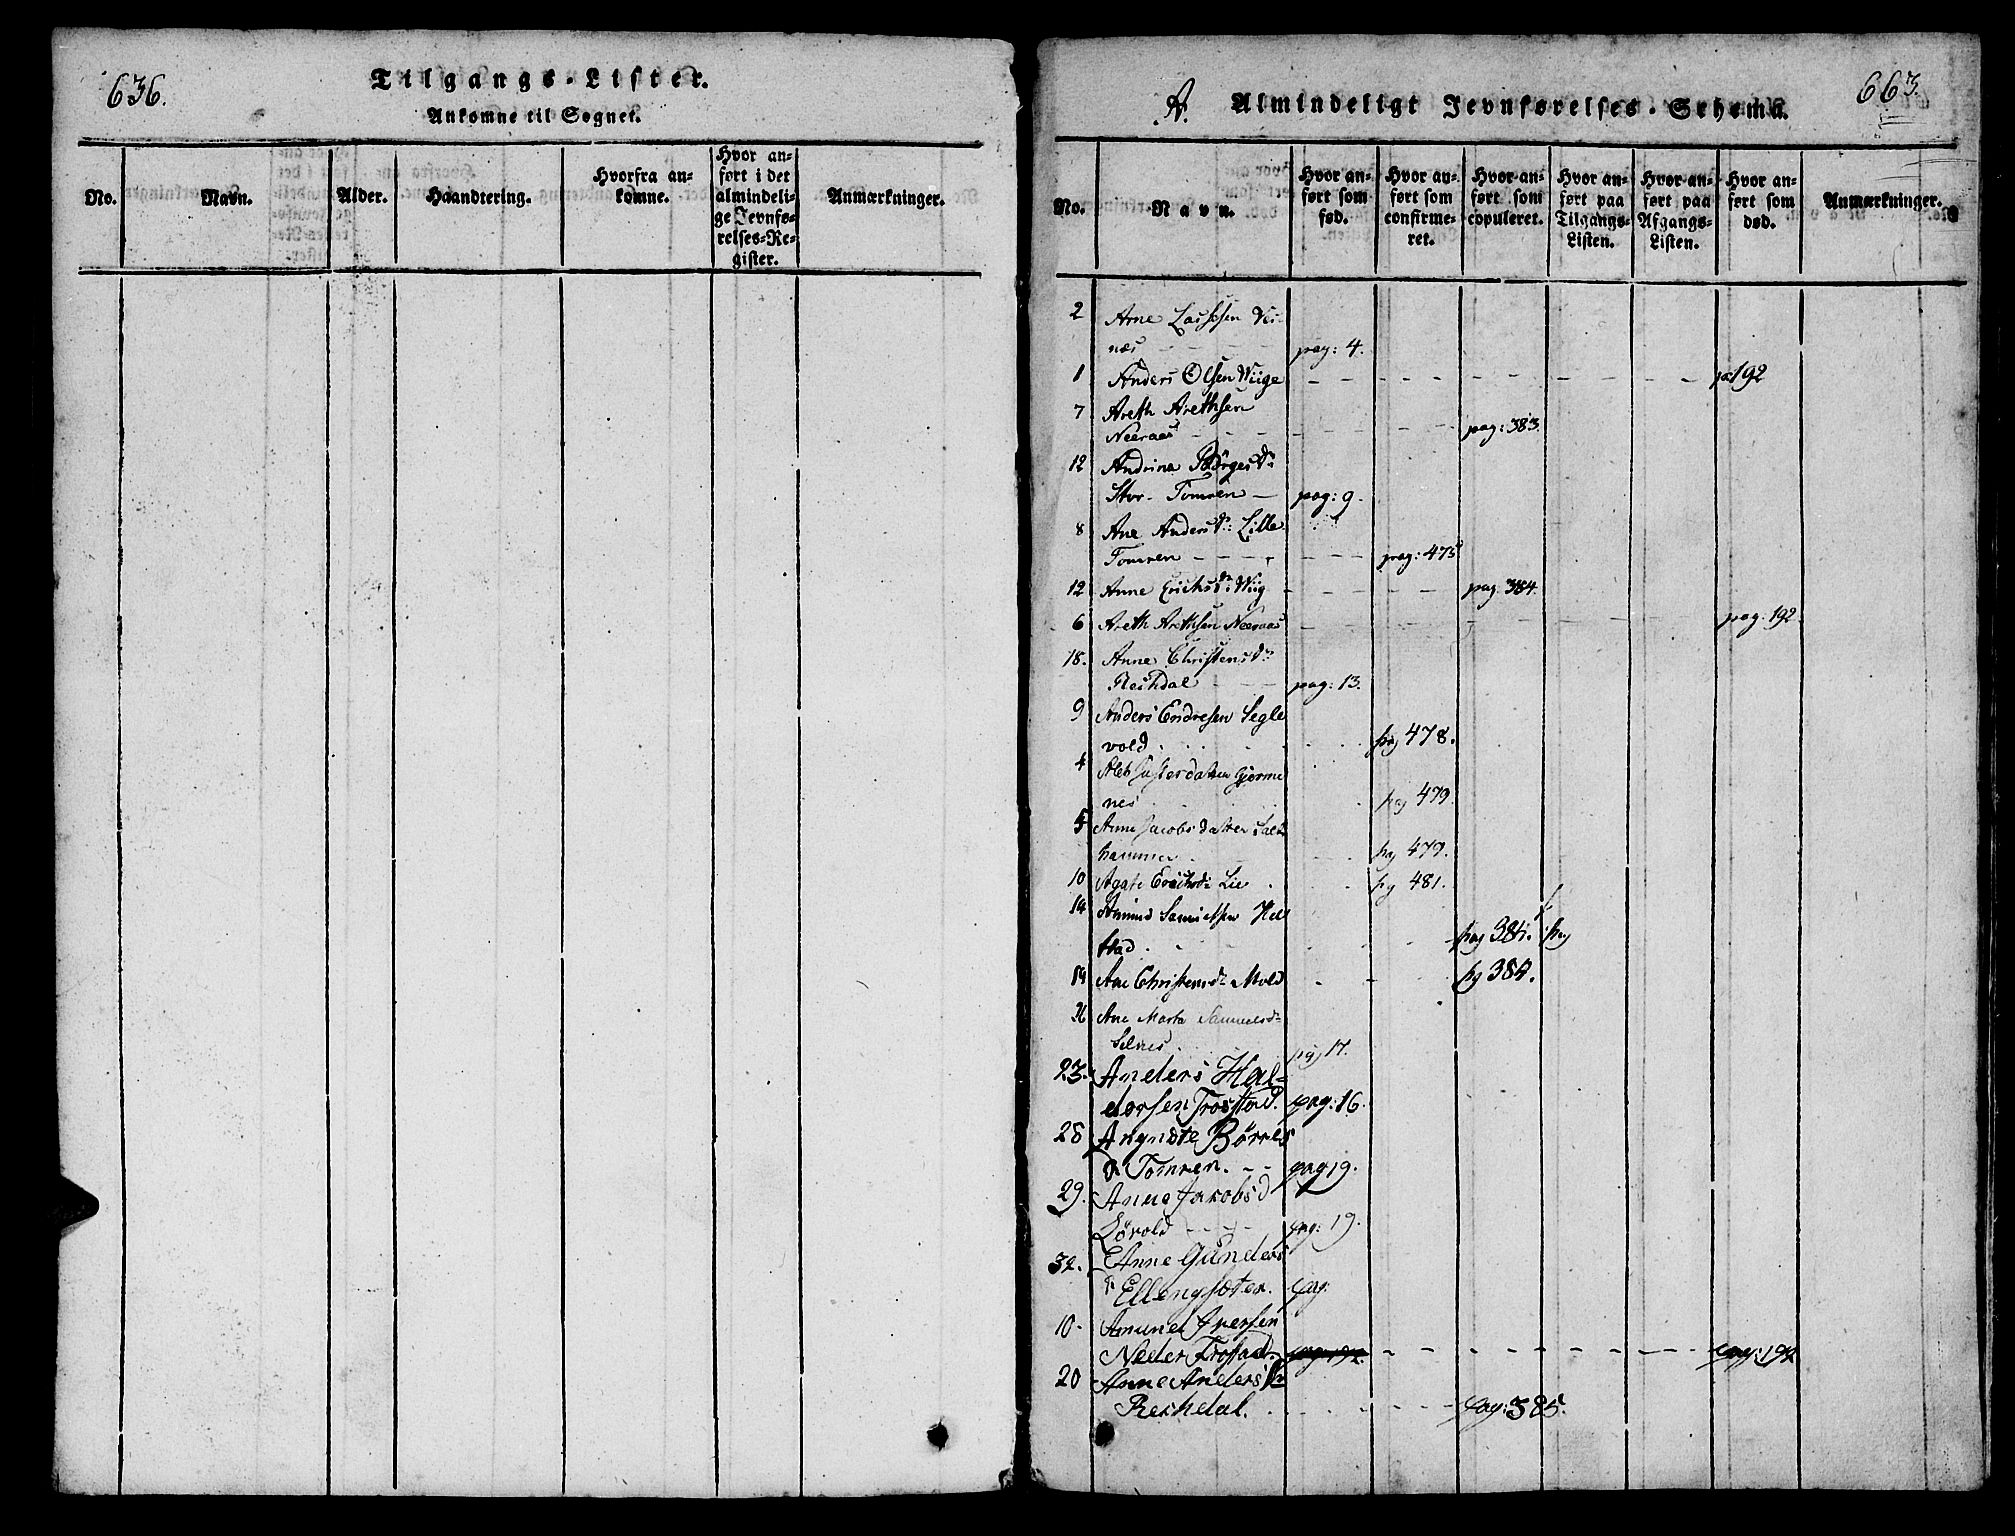 636.
Tilgangs-Lister.
Ankomne til Sognet.
No.
Navn.
Alder.
Haandtering.
Hvorfra an-
komne.
Hvor an-
ført i det
almindeli-
ge Jevnfø-
relses-Re-
gister.
Anmærkninger.
A.
Almindeligt Jevnførelses-Schema.
663.
No.
Navn.
Hvor an-
ført som
fød.
Hvor an-
ført som
confirme-
ret.
Hvor an-
ført som
copuleret.
Hvor an-
ført paa
Tilgangs-
Listen.
Hvor an-
ført paa
Afgangs-
Listen.
Hvor an-
ført som
død.
Anmærkninger.
2 Arne Lassesen Vis-
næs pag: 4.
1 Anders Olsen Wiige 192
7 Areth Arethsen
Neeraas pag: 383.
12 Andrina Børges Dr
Stor-Tomren pag: 9.
8 Ane Anders Dr: Lille
Tomren pag: 475
12 Anne Erichs Dr: Wiig pag. 384.
6 Areth Arethsen Neeraas pag. 192.
18. Anne Christens Dr
Reshdal pag: 13.
9 Anders Endresen Segle
vold pag 478.
4 datter Gjerme
nes pag 479.
5 Anne Jacobs datter
hammer pag 479.
10 Agate Erichsd: Lie pg 481.
14 Amund Samuelsen Hel
stad pag 384. pag
14 Ane Christensdr Mold pg 384.
26 Ane Marta Samuelsd
Selnes pag 17.
23. Anders Hal-
dorsen Trostad. pag: 16.
28 Børres
Dr Tomren. pag 19.
29. Anne Jakobs d
Lövold pag: 19.
32. Anne Gunders
dr Ellengsæter. pag:
10. Amund Iversen
Neder Trostad. pag: 192
20 Anne Anders Dr
Reshdal. pag: 385.